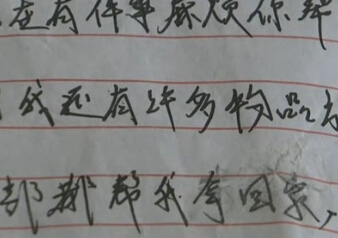 在有件事麻烦你帮
我还有许多物品
都帮我拿回家,